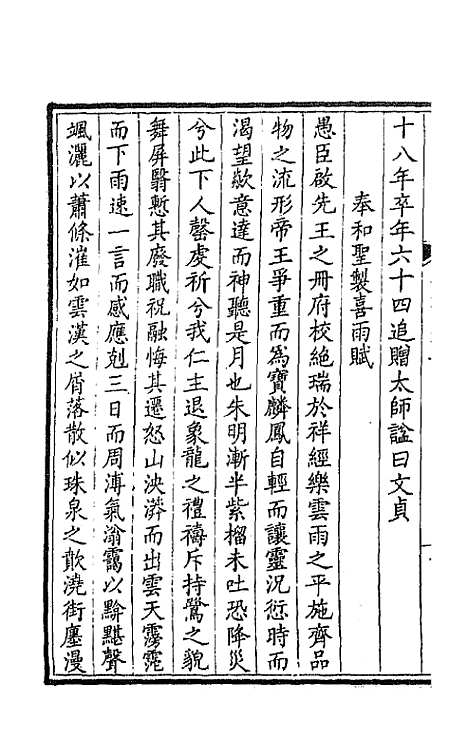 十八年卒年六十四追贈太師諡曰文貞
奉和聖製喜雨賦
愚臣啟先王之冊府校絶瑞於祥經樂雲雨之平施齊品
物之流形帝王爭重而為寶麟鳳自輕而讓靈況愆時而
渴望歘意達而神聽是月也朱明漸半紫榴未吐恐降災
兮此下人罄虔祈兮我仁主退象龍之禮禱斥持鷺之貌
舞屏翳慙其廢職祝融悔其遷怒山泱漭而出雲天霶霔
而下雨速一言而感應剋三日而周溥氣滃靄以黭黮聲
颯灑以蕭條漼如雲漢之屑落散似珠泉之歕澆街塵漫